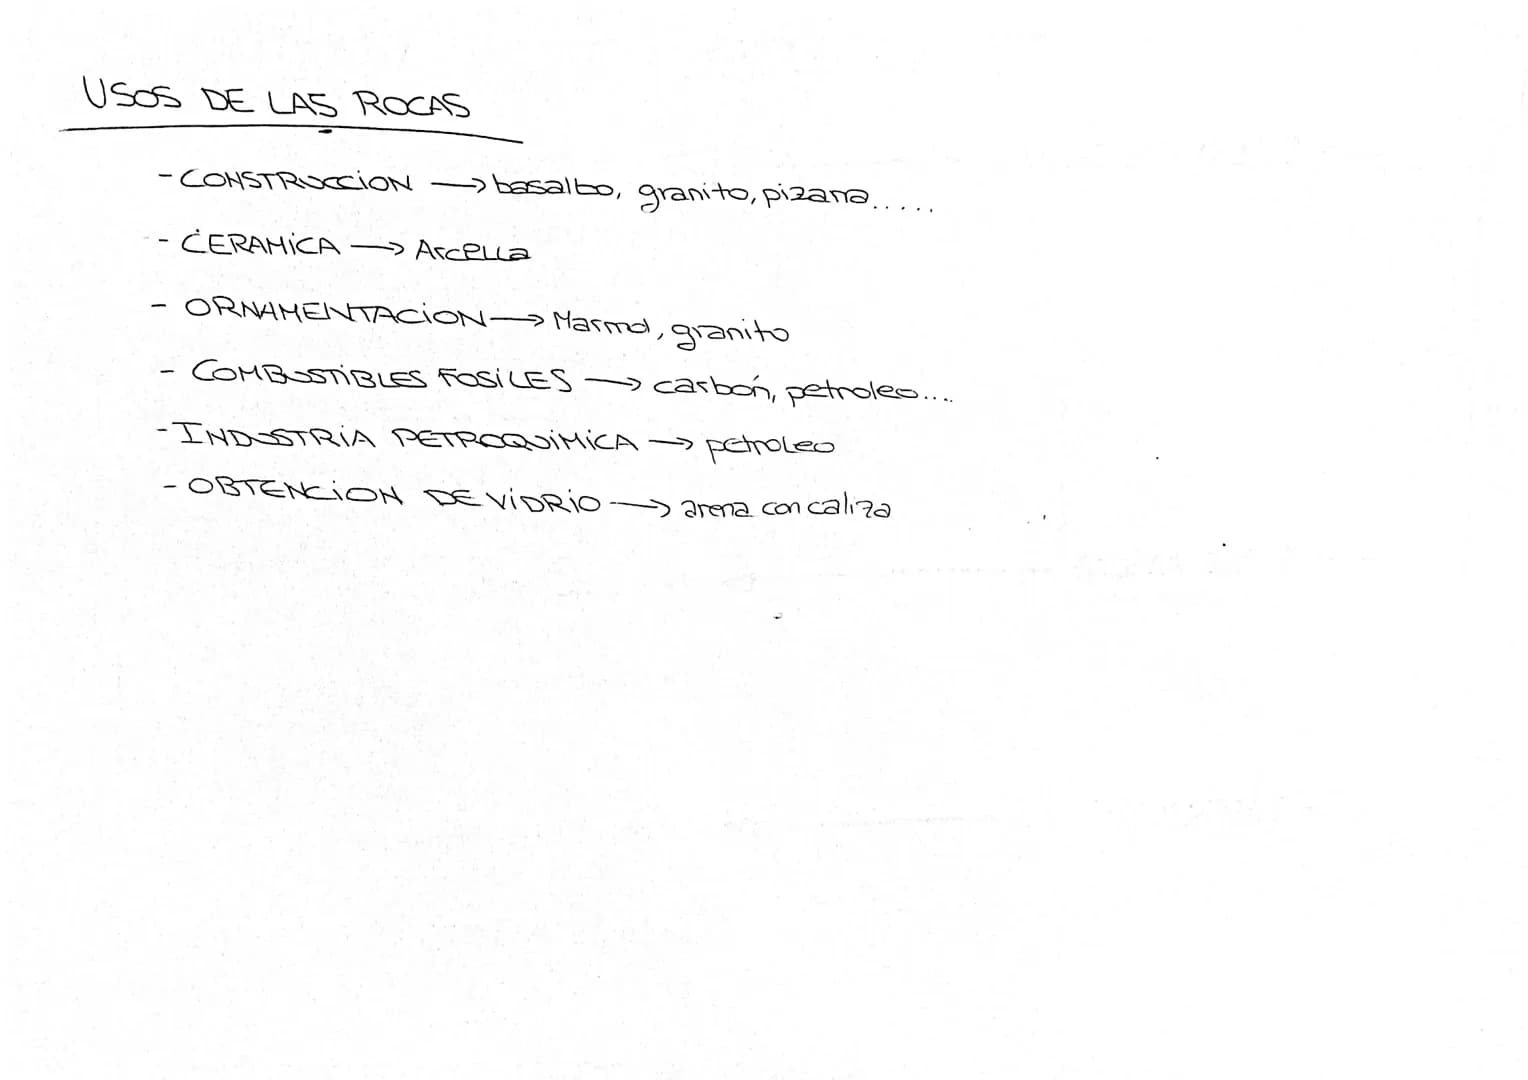 USOS DE LAS ROCAS
- CONSTRUCCION → basalto, granito, pizarra.....
- CERAMICA → Arcilla
- ORNAMENTACION → Marmol, granito
- COMBUSTIBLES FOSILES → carbón, petroleo....
- INDUSTRIA PETROQUIMICA → petroleo
- OBTENCION DE VIDRIO → arena con caliza